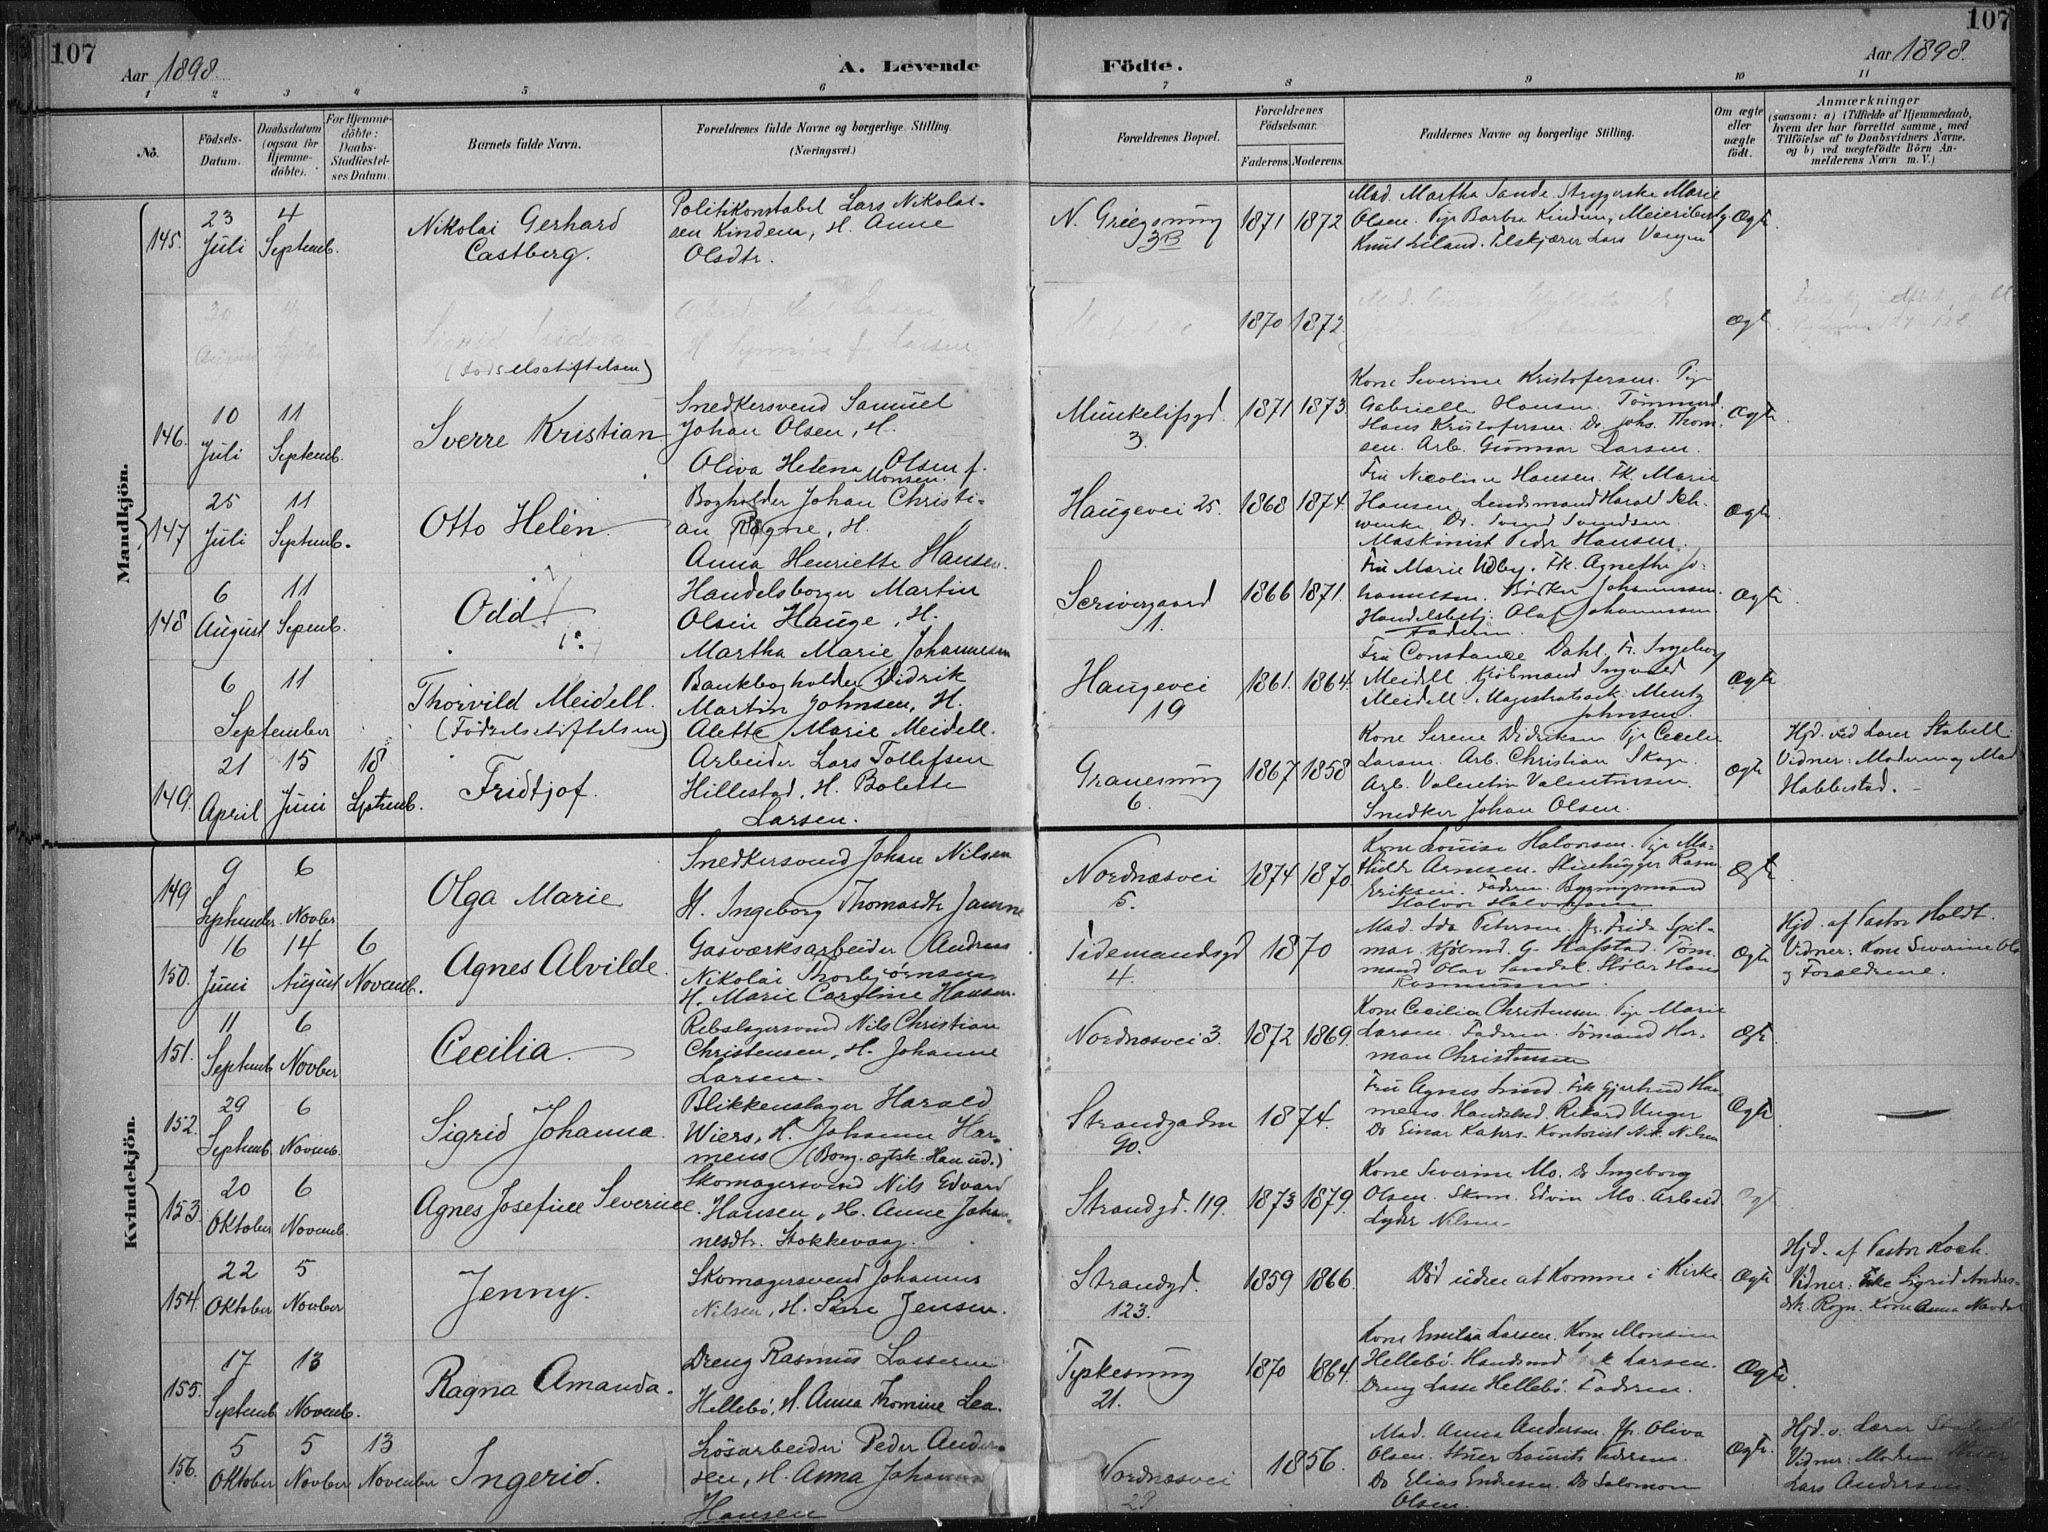 107
107
Aar 1898.
A. Levende Födte.
Aar 1898.
1 2 3 4 5 6 7 8 9 10 11
No.
Födsels-Datum.
Daabsdatum (ogsaa for Hjemme-döbte).
For Hjemme-döbte: Daabs-Stadfæstel-ses Datum.
Barnets fulde Navn.
Forældrenes fulde Navne og borgerlige Stilling.
(Næringsvei.)
Forældrenes Bopæl.
Forældrenes Födselsaar.
Faderens. Moderens.
Faddernes Navne og borgerlige Stilling.
Om ægte eller uægte födt.
Anmærkninger
(saasom: a) i Tilfælde af Hjemmedaab,
hvem der har forrettet samme, med
Tilföielse af to Daabsvidners Navne,
og b) ved uægtefödte Börn An-
melderens Navn m. V.)
Mandkjön.
145. 23 Juli 4 Septemb.
Nikolai Gerhard
Castberg.
Politikonstabel Lars Nikolai-
sen Kindem, H. Anne
Olsdtr.
N. Griegsmug
3B
1871 1872
Mad. Martha Sande. Strygerske Marie
Olsen. Pige Barbra Kindem, Meieribesty.
Knut Liland. Lars Vangen
Ægte
30 August 4
(Födselsstiftelsen)
Larsen
H. Synnöve f. Larsen
1870 1872.
Ægt.
146. 10 Juli 11 Septemb.
Sverre Kristian
Snedkersvend Samuel
Johan Olsen, H.
Oliva Helena Olsen f.
Monsen.
Munkelifsgd.
3.
1871 1873.
Kone Severine Kristofersen. Pige
Gabrielle Hansen. Tömmerd.
Hans Kristofersen. Do Johs. Thom-
sen. Arb. Gunnar Larsen.
Ægte
147 25 Juli 11 Septemb.
Otto Helén
Bogholder Johan Christi-
an Rogne, H.
Anna Henriette Hansen.
Haugevei 25.
1868 1874.
Fru Nicoline Hansen. Fk. Marie
Hansen. Lensmand Harald Sch-
wenke. Dr. Svend Svendsen
Maskinist Peder Hansen.
Ægte
148 6 August 11 Sepemb.
Odd
Handelsborger Martin
Olsen Hauge, H.
Martha Marie Johannesen
Scrivergaard
1.
1866 1871.
Fru Marie Udby. Fk. Agnethe Jo-
hannesen. Bödker Johannessen
Handelsbetj. Olaf Johannessen
Faderen.
Ægte
6 11 September
Thorvild Meidell.
(Födselsstiftelsen)
Bankbogholder Didrik
Martin Johnsen, H.
Alette Marie Meidell.
Haugevei
19
1861. 1864.
Fru Constance Dahl. Fr. Ingeborg
Meidell. Kjöbmand Ingvald
Meidell. Magistratssek. Mentz
Johnsen.
Ægte
149. 21 April 15 Juni 18 Septemb.
Fridtjof.
Arbeider Lars Tollefsen
Hillestad, H. Bolette
Larsen.
Granesmug
6.
1867 1858
Kone Serene Didriksen Pige Cecelie
Larsen. Arb. Christian Skage.
Arb. Valentin Valentinsen.
Snedker Johan Olsen.
Ægte
Hjd. ved Lærer Stabell
Vidner: Moderen og Mad
Habbestad.
Kvindekjön.
149 9 September 6 Novber
Olga Marie
Snedkersvend Johan Nilsen
H. Ingeborg Thomasdtr Jamne
Nordnæsvei
5.
1874 1870.
Kone Louise Halvorsen. Pige Ma-
thilde Arnesen. Stenhugger Rasm.
Eriksen. Faderen. Bygningsmand
Halvor Halvorsen
Ægte
150. 16 Juni 14 August 6 Novemb.
Agnes Alvilde.
Gasværksarbeider Andreas
Nikolai Thorbjörnsen
H. Marie Caroline Hansen.
Tidemandsgd
4.
1870
Mad. Ida Petersen. Jfr. Frida Gjel-
mar. Kjöbmd. G. Hafstad. Töm-
mand Olai Sandal. Stöler Hans
Rasmussen
Ægte
Hjd. af Pastor Holdt.
Vidner: Kone Severine Ols
og Forældrene.
151. 11 Septemb 6 Novber
Cecilia.
Rebslagersvend Nils Christian
Christensen, H. Johanne
Larsen.
Nordnæsvei 3.
1872 1869.
Kone Cecilia Christensen. Pige Marie
Larsen. Faderen. Sömand Her-
man Christensen
Ægte
152. 29 Septemb. 6 Novemb.
Sigrid Johanna.
Blikkenslager Harald
Wiers, H. Johanne Har-
mens (Borg. ægtsk. Han ud.)
Strandgaden
90.
1874.
Fru Agnes Lind. Frk Gjertrud Har
mens. Handelsbd. Rikard Unger
Do Einar Kahrs. Kontorist Nik. Nilsen
Ægte
153. 20 Oktober 6 Novemb.
Agnes Josefine Severine.
Skomagersvend Nils Edvard
Hansen, H. Anne Johan-
nesdtr. Stokkevaag.
Strandgd. 119.
1873 1879.
Kone Severine Mo. Do Ingeborg
Olsen. Skom. Edvin Mo. Arbeid.
Lyder Nilsen
Ægt
154. 22 Oktober 5 Novber
Jenny.
Skomagersvend Johannes
Nilsen, H. Sine Jensen.
Strandgd.
123.
1859 1866.
Död uden at komme i Kirke
Ægte
Hjd. af Pastor Koch.
Vidner: Enke Sigrid Anders-
dtr. Rogn. Kone Anna Navdal
155. 17 Septemb 13 Novemb.
Ragna Amanda.
Dreng Rasmus Lassesen
Hellebö, H. Anna Thomine Lea.
Tyskesmug
21.
1870 1864.
Kone Emilia Larsen. Kone Monsine
Hellebö. Larsen.
Dreng Lasse Hellebö. Faderen.
Ægte
156. 5 Oktober 5 Novber 13 November
Ingerid.
Lösarbeider Peder Ander-
sen, H. Anna Johanna
Hansen
Nordnæsvei
29
1856.
Mad. Anna Andersen. Jfr. Oliva
Olsen. Stuer Laurits Pedersen.
Do Elias Endresen. Do Salomon
Olsen.
Ægte.
Hjd. v. Lærer Stabell
Vidner: Moderen
Lars Andersen